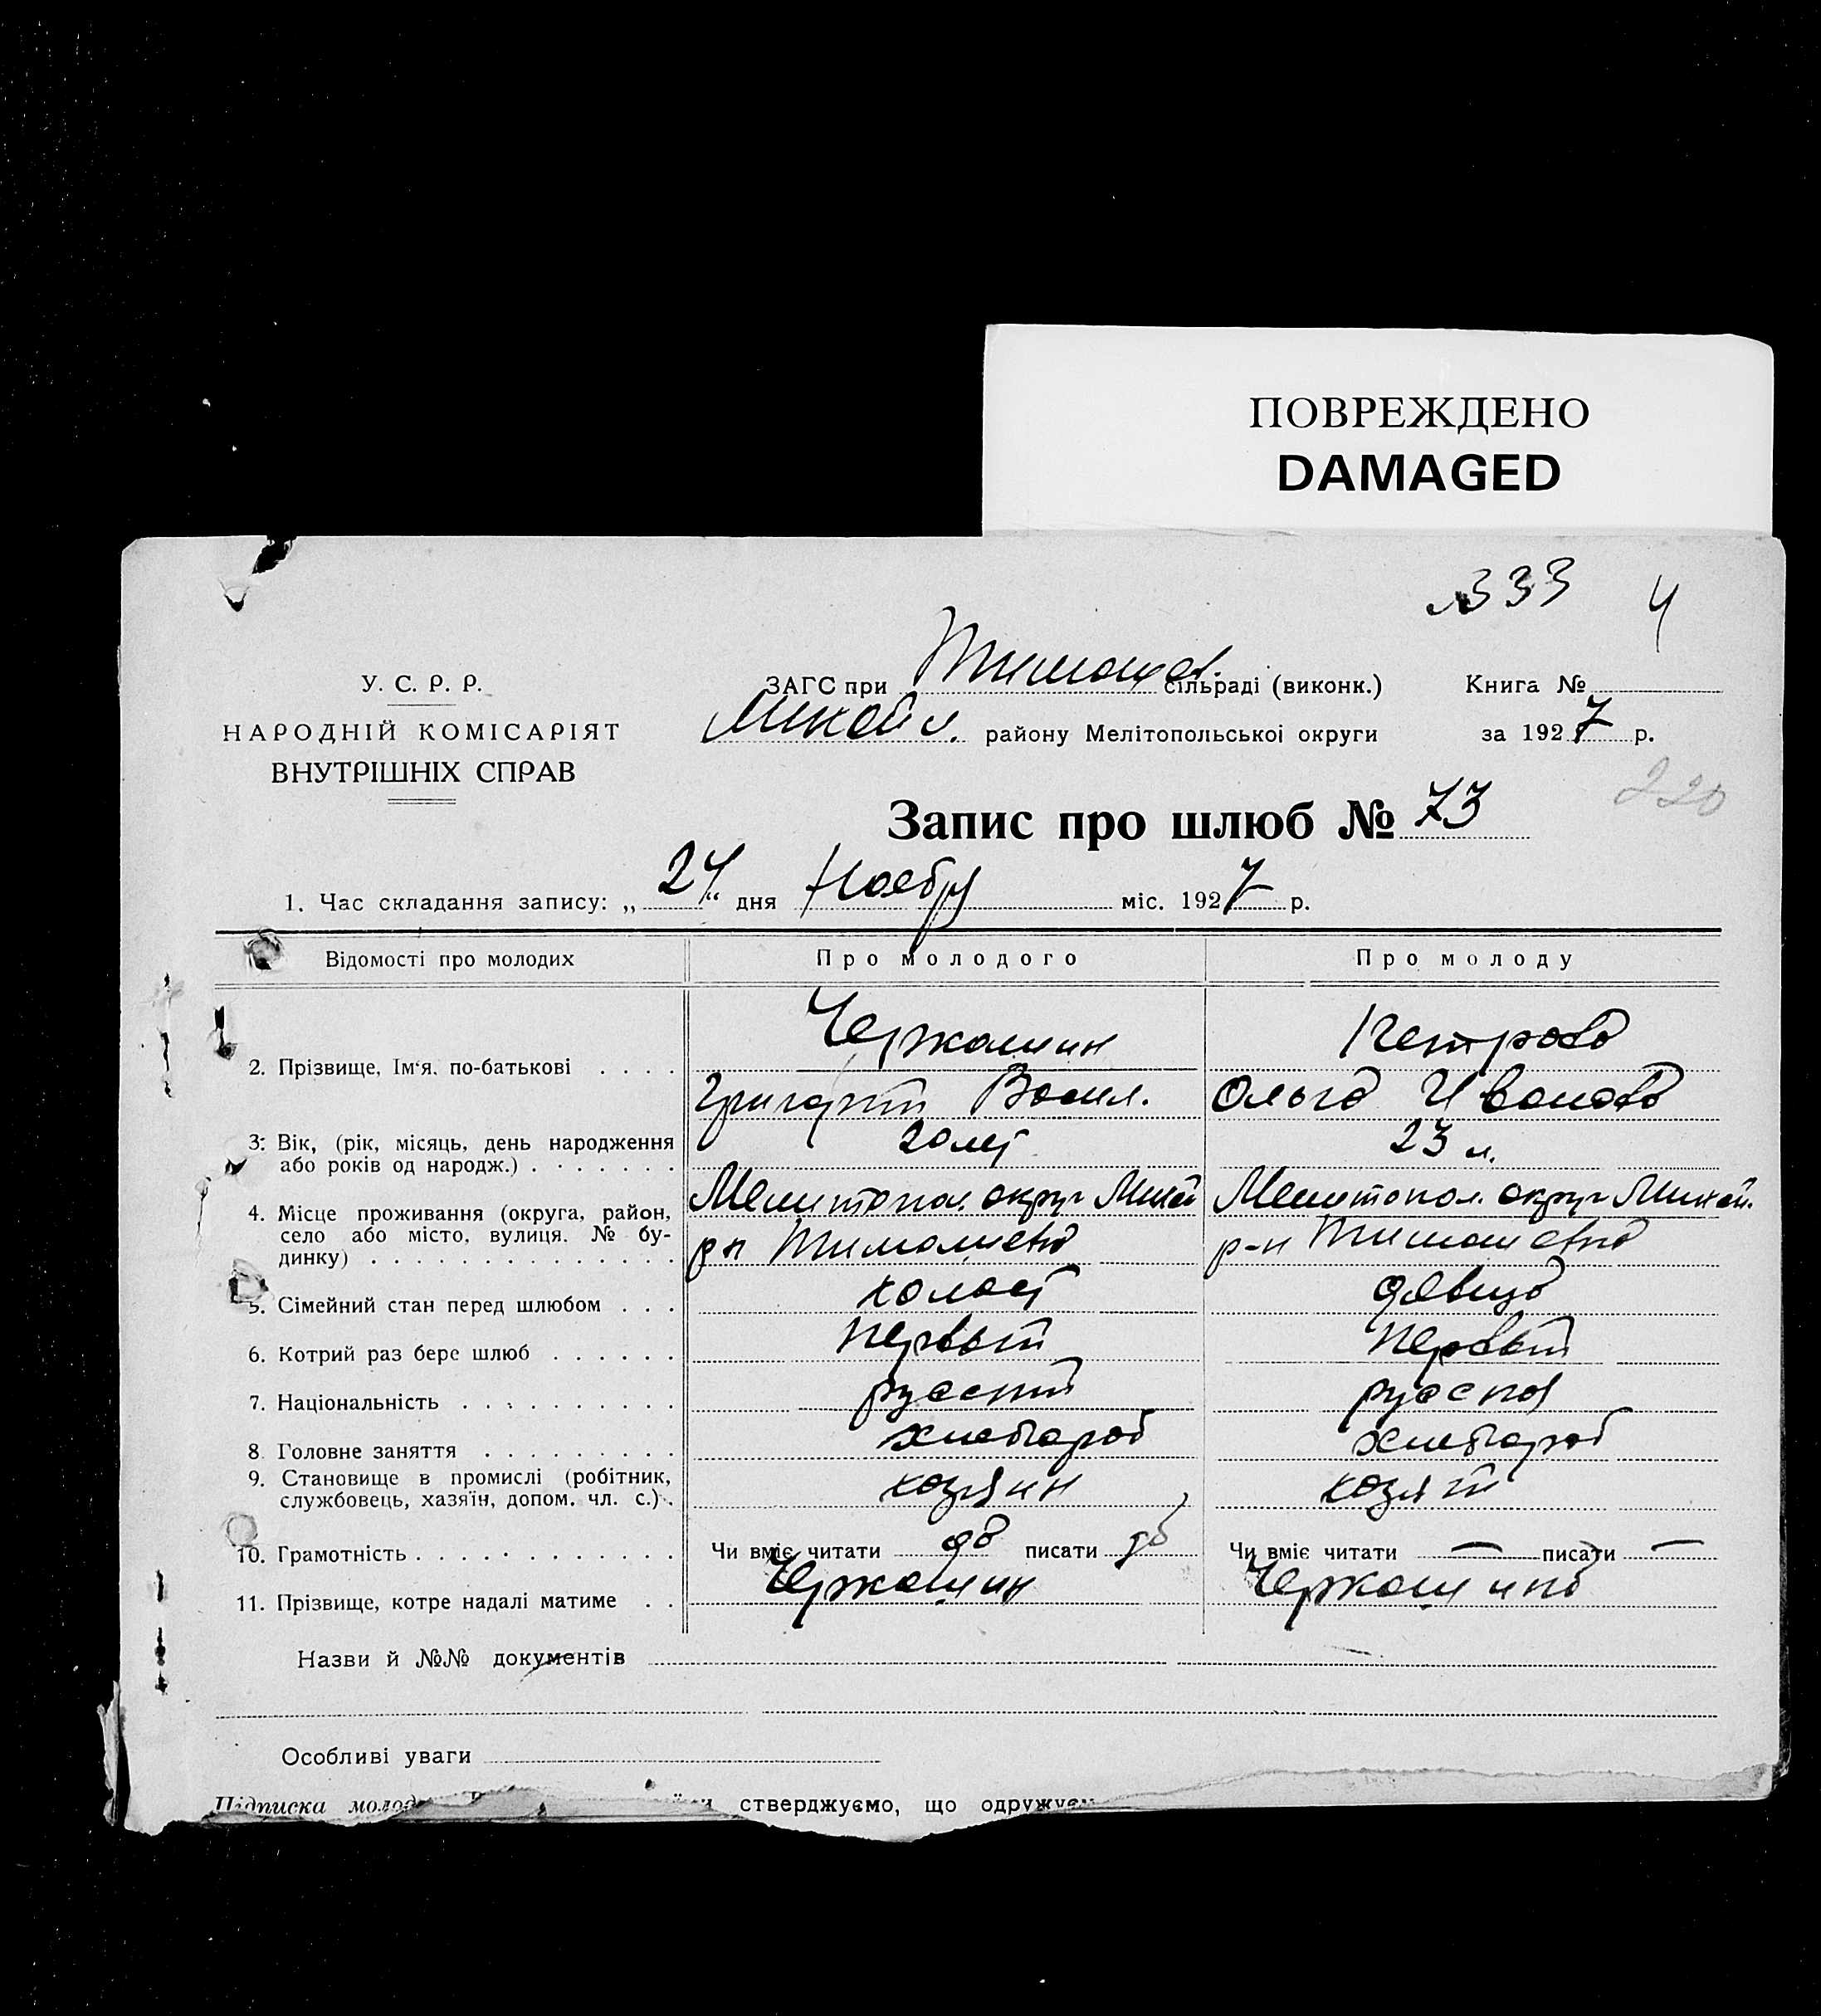 ПОВРЕЖДЕНО
DAMAGED
№333 4
У. С. Р. Р.
НАРОДНІЙ КОМІСАРІЯТ
ВНУТРІШНІХ СПРАВ
ЗАГС при Тимошев. сільраді (виконк.) Книга №
Михайл. району Мелітопольської округи за 1927 р.
220
Запис про шлюб № 73
1. Час складання запису: „24“ дня Ноября міс. 1927 р.
Відомості про молодих Про молодого Про молоду
2. Прізвище, Ім'я, по-батькові Черкашин Петрова
Григорий Васил. Ольга Иванова
3. Вік, (рік, місяць, день народження або років од народж.) 20 лет 23 л.
4. Місце проживання (округа, район, Мелитопол. округ Михай Мелитопол. округ Михай.
село або місто, вулиця. № бу- р-н Тимошевка р-н Тимошевка
динку)
5. Сімейний стан перед шлюбом холост девица
6. Котрий раз бере шлюб первый первый
7. Національність русский русская
8. Головне заняття хлебороб хлебороб
9. Становище в промислі (робітник, службовець, хазяїн, допом. чл. с.) хозяин
10. Грамотність Чи вміє читати да писати да Чи вміє читати — писати —
11. Прізвище, котре надалі матиме Черкашин Черкашина
Назви й №№ документів
Особливі уваги
Підписка молод стверджуємо, що одружуєм